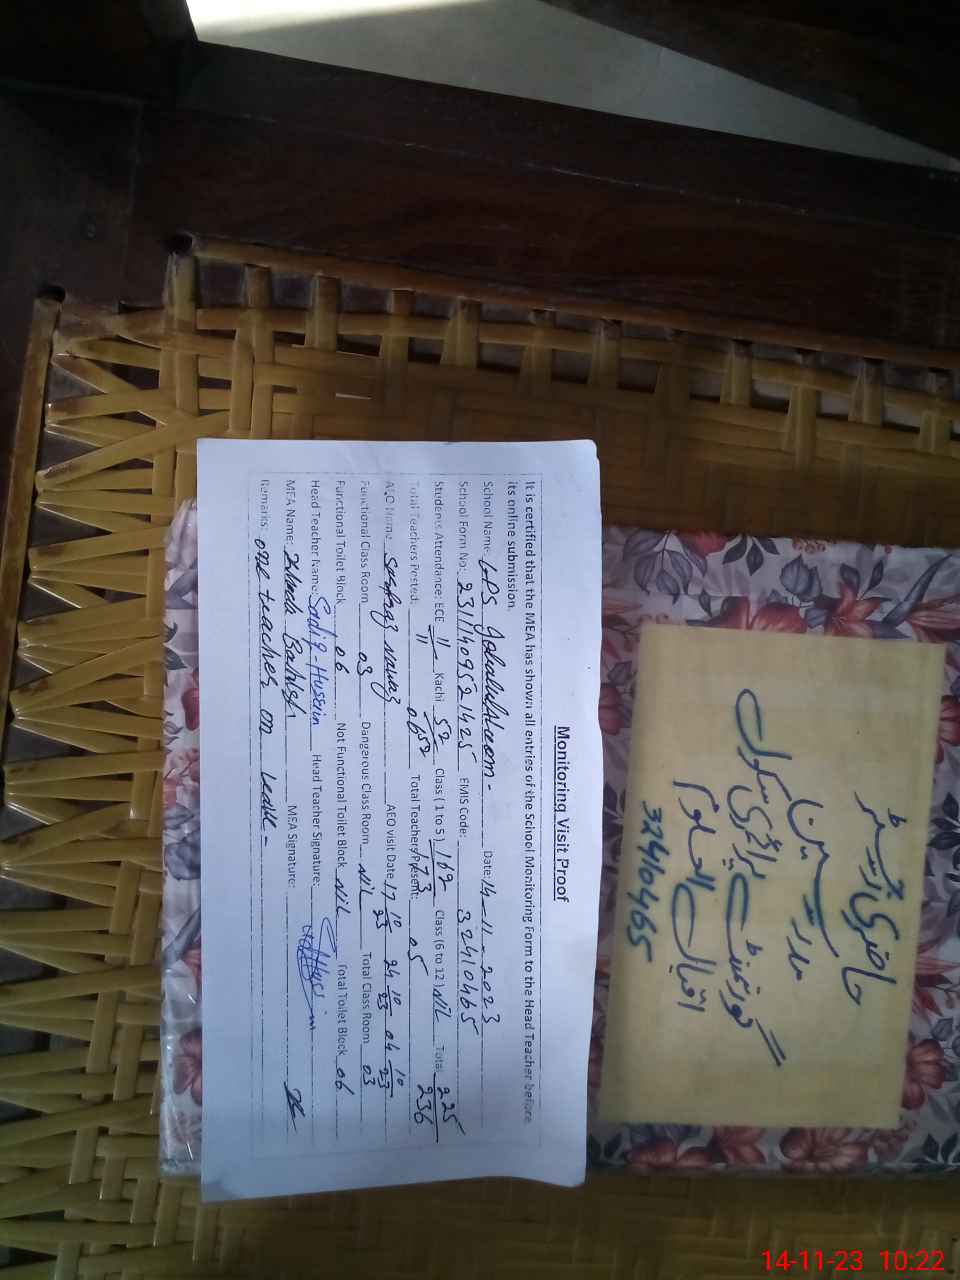 Monitoring Visit Proof
It is certified that the MEA has shown all entries of the School Monitoring Form to the Head Teacher before
its online submission.
School Name: GPS Date: 14-11-2023
School Form No: 2311409521425 EMIS Code: 32410465
Students Attendance: ECE 11 Kachi 52 Class (1 to 5) 162 Class (6 to 12) Nil Total 225
52 173 236
Total Teachers Posted: 06 Total Teachers Present: 05
AEO Name: Sarfraz Nawaz AEO visit Date 17 10/23 24 10/23 04 10/23
Functional Class Room 03 Dangerous Class Room Nil Total Class Room 03
Functional Toilet Block 06 Not Functional Toilet Block Nil Total Toilet Block 06
Head Teacher Name: Sadiq Hussain Head Teacher Signature:
MEA Name: Khuda Bakhsh MEA Signature:
Remarks: one teacher on leave -
حاضری رجسٹر
مدرسین
گورنمنٹ پرائمری سکول
اقبال العلوم
32410465
14-11-23 10:22